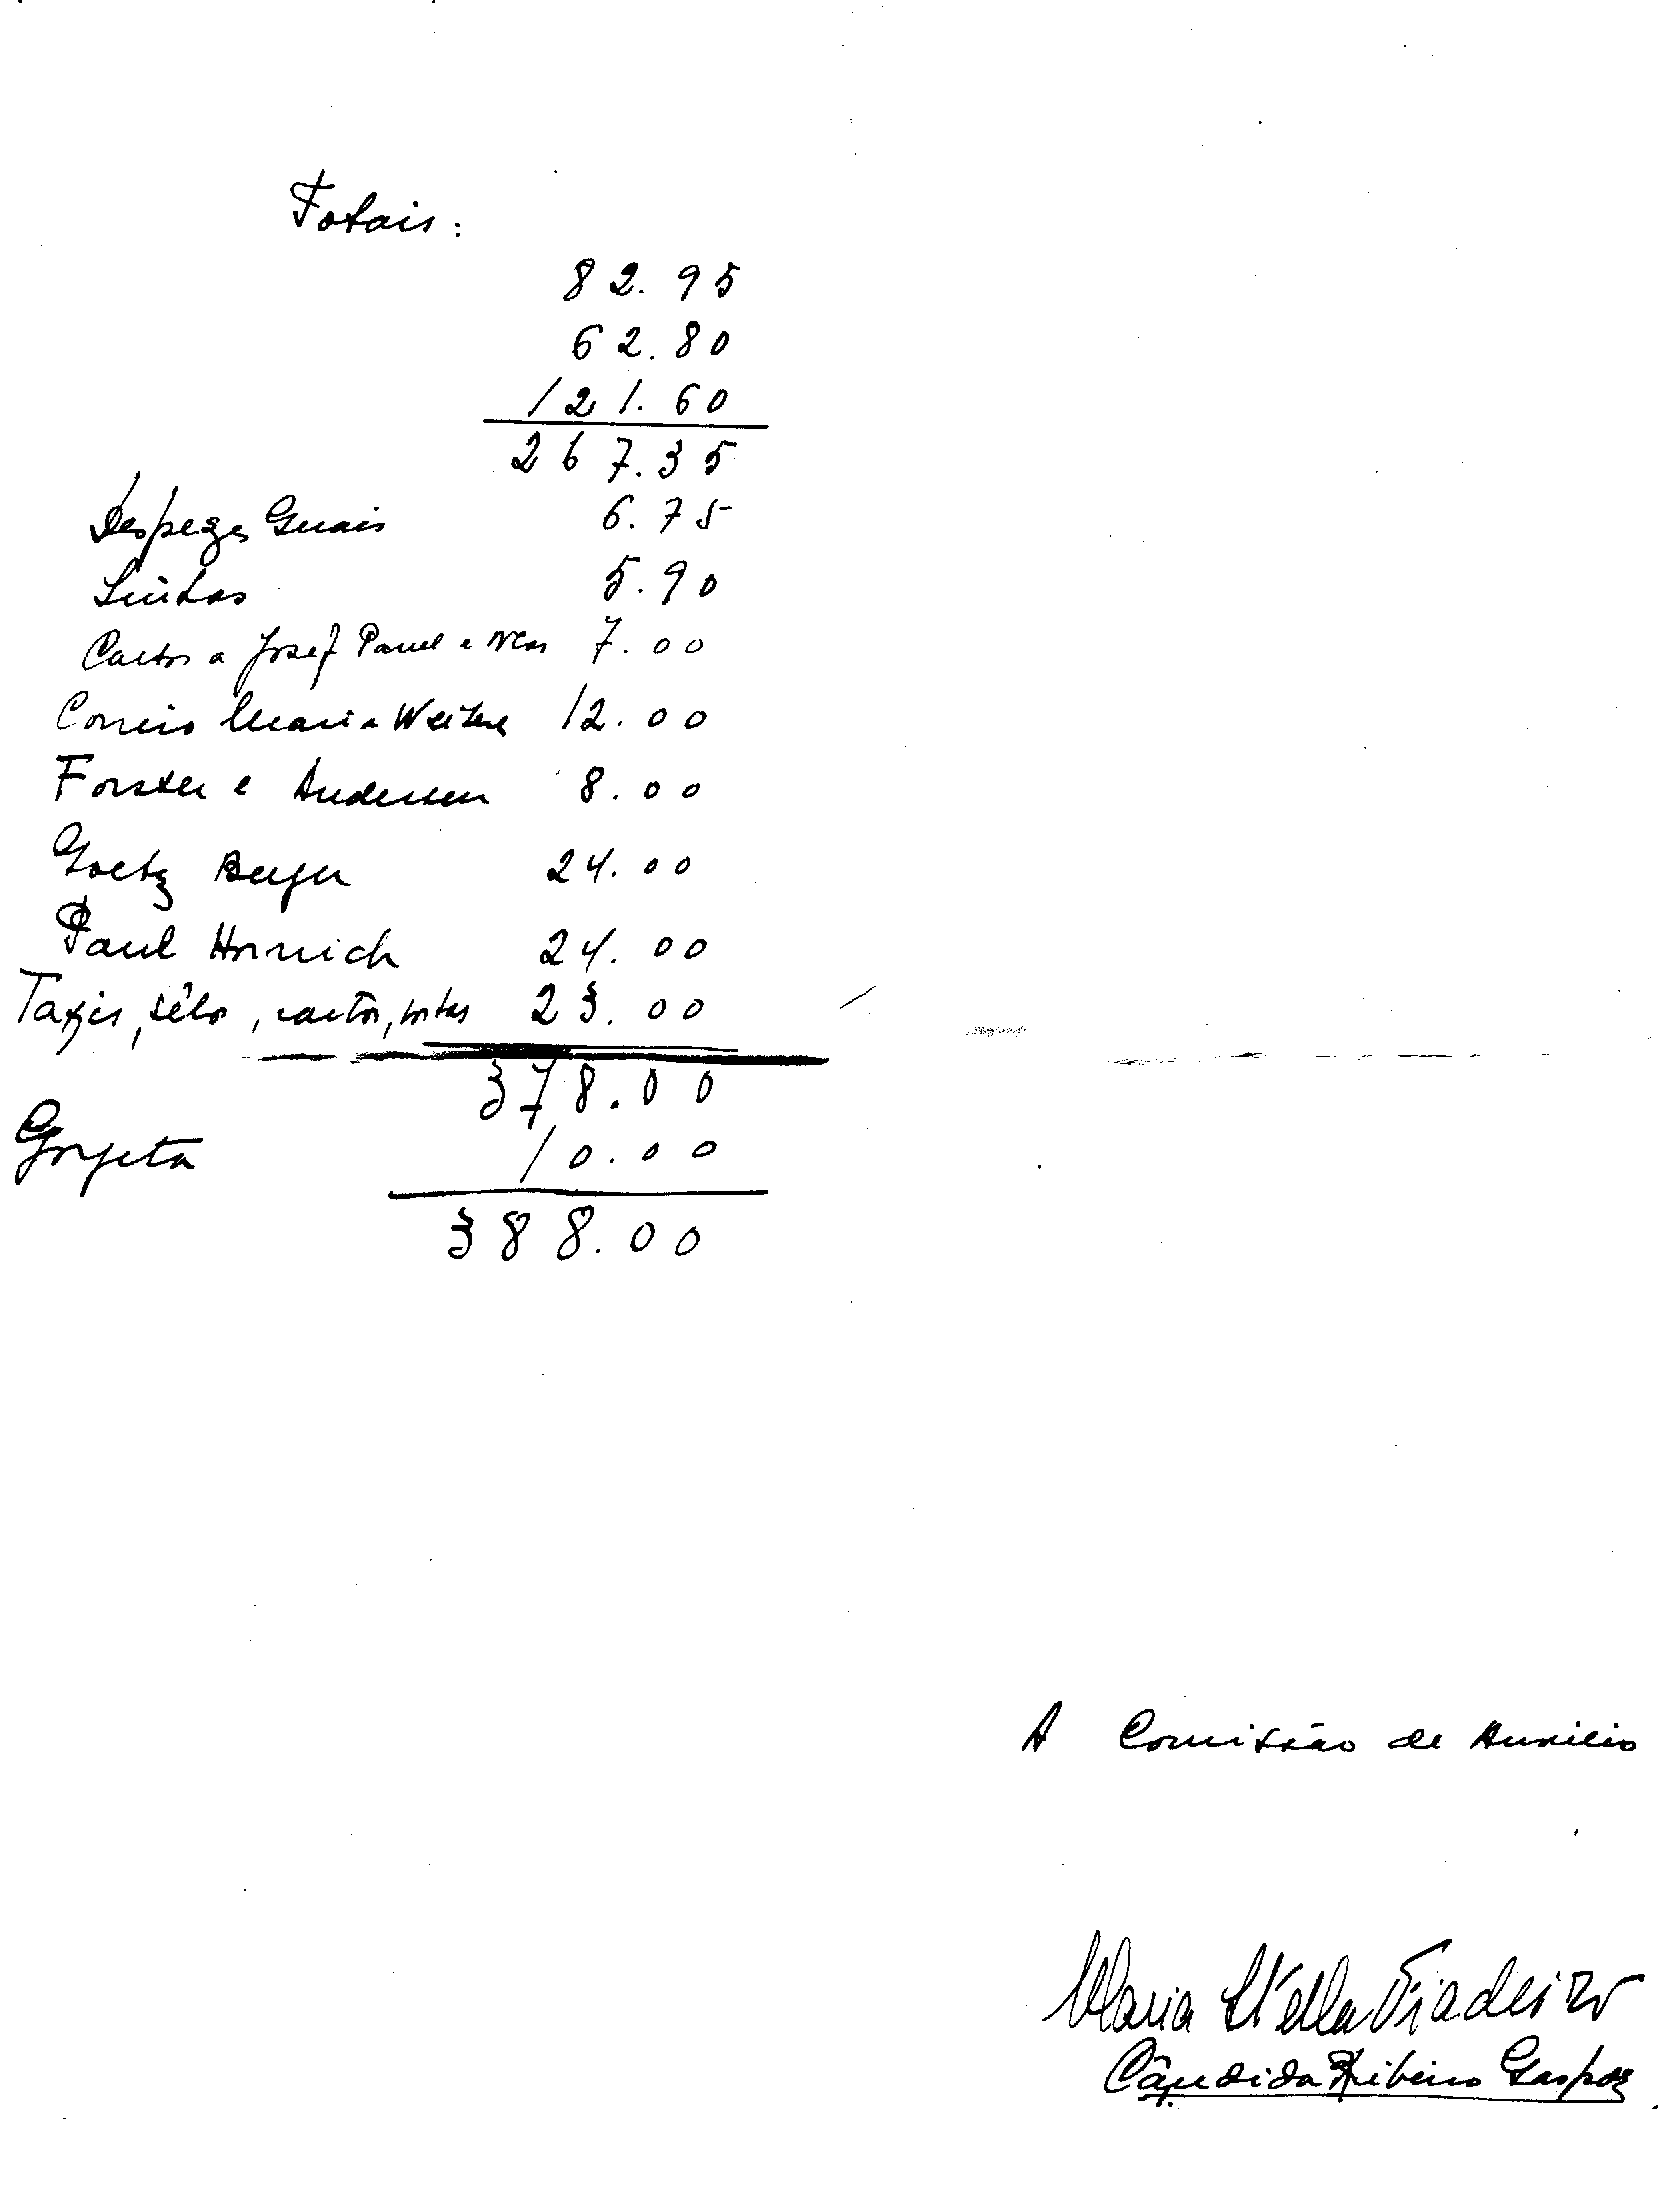 Totais:
82.95
62.80
121.60
267.35
Despezas Gerais 6.75
5.90
a Josef 7.00
Correio Maria 12.00
Forster e Andersen 8.00
Goetz Berger 24.00
Paul Hornich 24.00
Taxis, sêlos, 23.00
378.00
Gorjeta 10.00
388.00
A Comissão de Auxilio
Maria Stella Fiadeiro
Cândida Ribeiro Gaspar